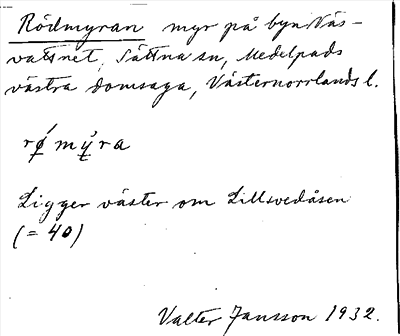 Rödmyran myr på byn Näs-
vattnet, Sättna sn, Medelpads
västra domsaga, Västernorrlands l.
rǿ mý̨ra
Ligger väster om Lillsvedåsen
(= 40)
Valter Jansson 1932.